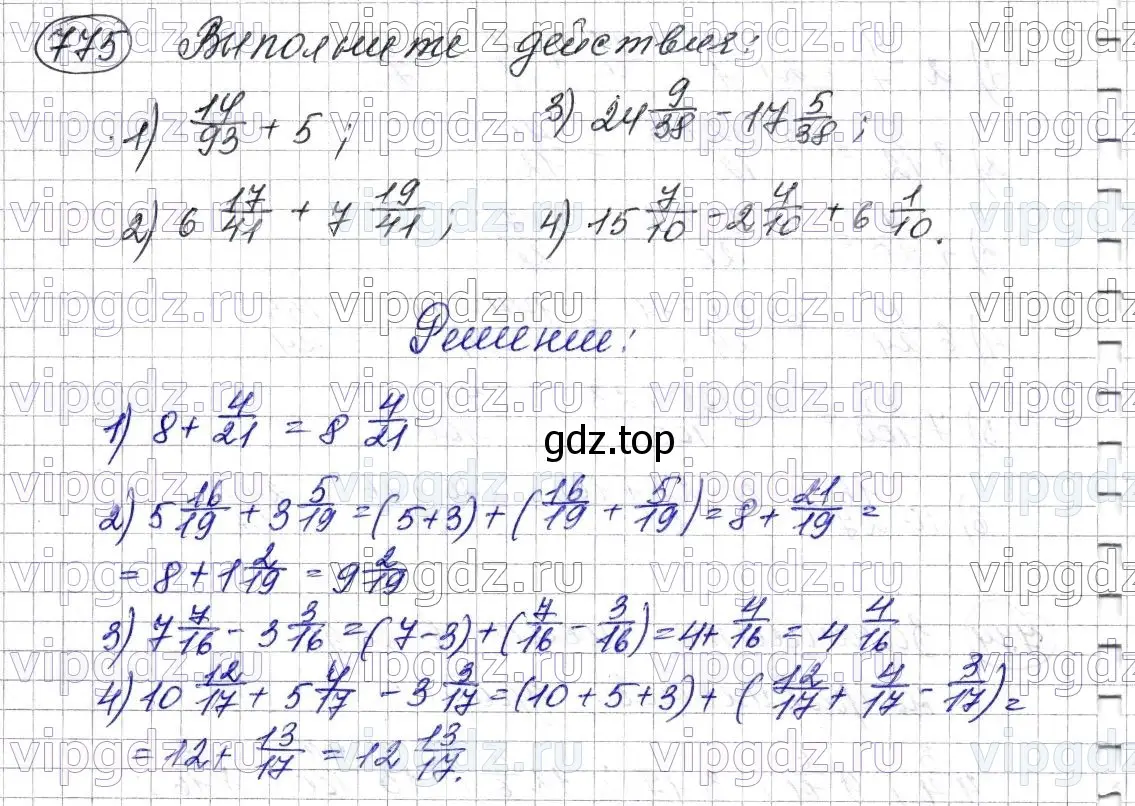 775 Выполните действия:
1) 14/93 + 5; 3) 24 9/38 - 17 5/38;
2) 6 17/41 + 7 19/41; 4) 15 7/10 - 2 4/10 + 6 1/10.
Решение:
1) 8 + 4/21 = 8 4/21
gdz.top
2) 5 16/19 + 3 5/19 = (5+3) + (16/19 + 5/19) = 8 + 21/19 =
= 8 + 1 2/19 = 9 2/19
3) 7 7/16 - 3 3/16 = (7-3) + (7/16 - 3/16) = 4 + 4/16 = 4 4/16
4) 10 12/17 + 5 4/17 - 3 3/17 = (10 + 5 + 3) + (12/17 + 4/17 - 3/17) =
= 12 + 13/17 = 12 13/17.
vipgdz.ru